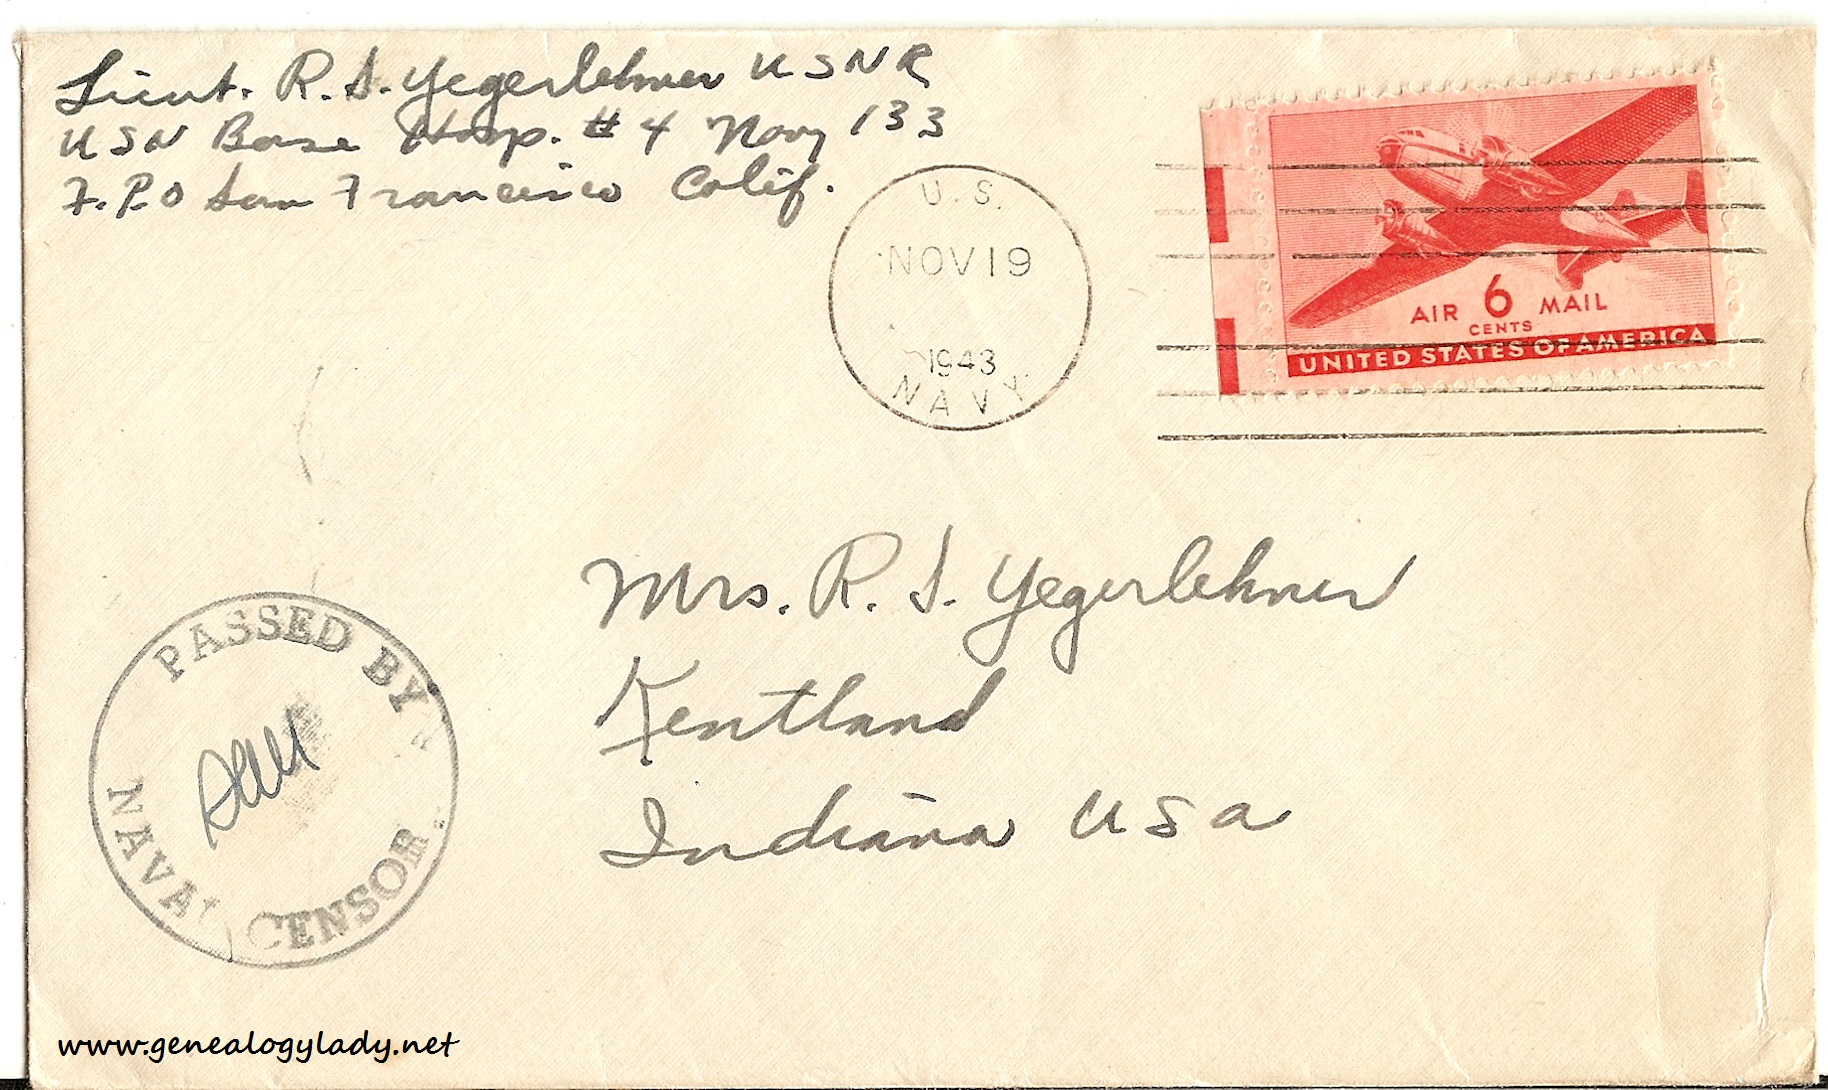 Lieut. R. S. Yegerlehner USNR
USN Base Hosp. #4 Navy 133
F.P.O San Francisco Calif.
U. S.
NOV 19
1943
NAVY
AIR 6 MAIL
CENTS
UNITED STATES OF AMERICA
Mrs. R. S. Yegerlehner
Kentland
Indiana USA
PASSED BY
NAVAL CENSOR
www.genealogylady.net